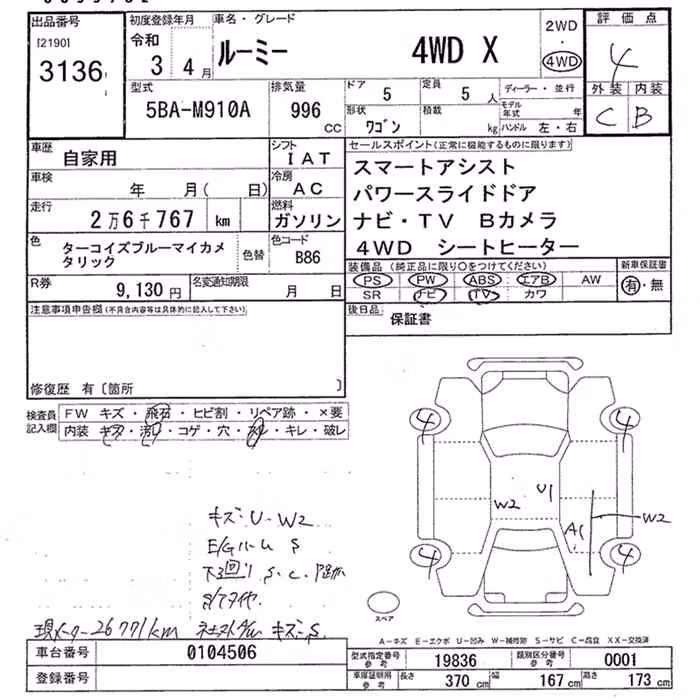 出品番号
[2190]
3136
初度登録年月
令和
3 4月
車名・グレード
ルーミー 4WD X
2WD
・
4WD
評価点
4
外装 内装
C B
型式
5BA-M910A
排気量
996
CC
ドア
5
定員
5 人
ディーラー・並行
形状
ワゴン
積載
kg
モデル年式 年
ハンドル 左・右
車歴
自家用
シフト
IAT
車検
年 月( 日)
冷房
AC
走行
2万6千767 km
燃料
ガソリン
色
ターコイズブルーマイカメ
タリック
色替
色コード
B86
R券
9,130 円
名変通知期限
月 日
セールスポイント(正常に機能するものに限ります)
スマートアシスト
パワースライドドア
ナビ・TV Bカメラ
4WD シートヒーター
装備品(純正品に限り○をつけてください)
PS PW ABS エアB AW
SR ナビ TV カワ
新車保証書
有・無
後日品
保証書
注意事項申告欄(不具合内容等は具体的に記入して下さい)
修復歴 有〔箇所 〕
検査員
記入欄
FW キズ・飛石・ヒビ割・リペア跡・×要
内装 キズ・汚レ・コゲ・穴・ ・キレ・破レ
4 4
W2 U1
A1 W2
4 4
キズ・U・W2
E/Gルーム S
下回り S.C.
スペア
現メーター26771km キズ・S
A-キズ E-エクボ U-凹み W-補修跡 S-サビ C-腐食 XX-交換済
車台番号
0104506
登録番号
型式指定番号
参考
19836
類別区分番号
参考
0001
車庫証明用
参考
長さ 370 cm 幅 167 cm 高さ 173 cm